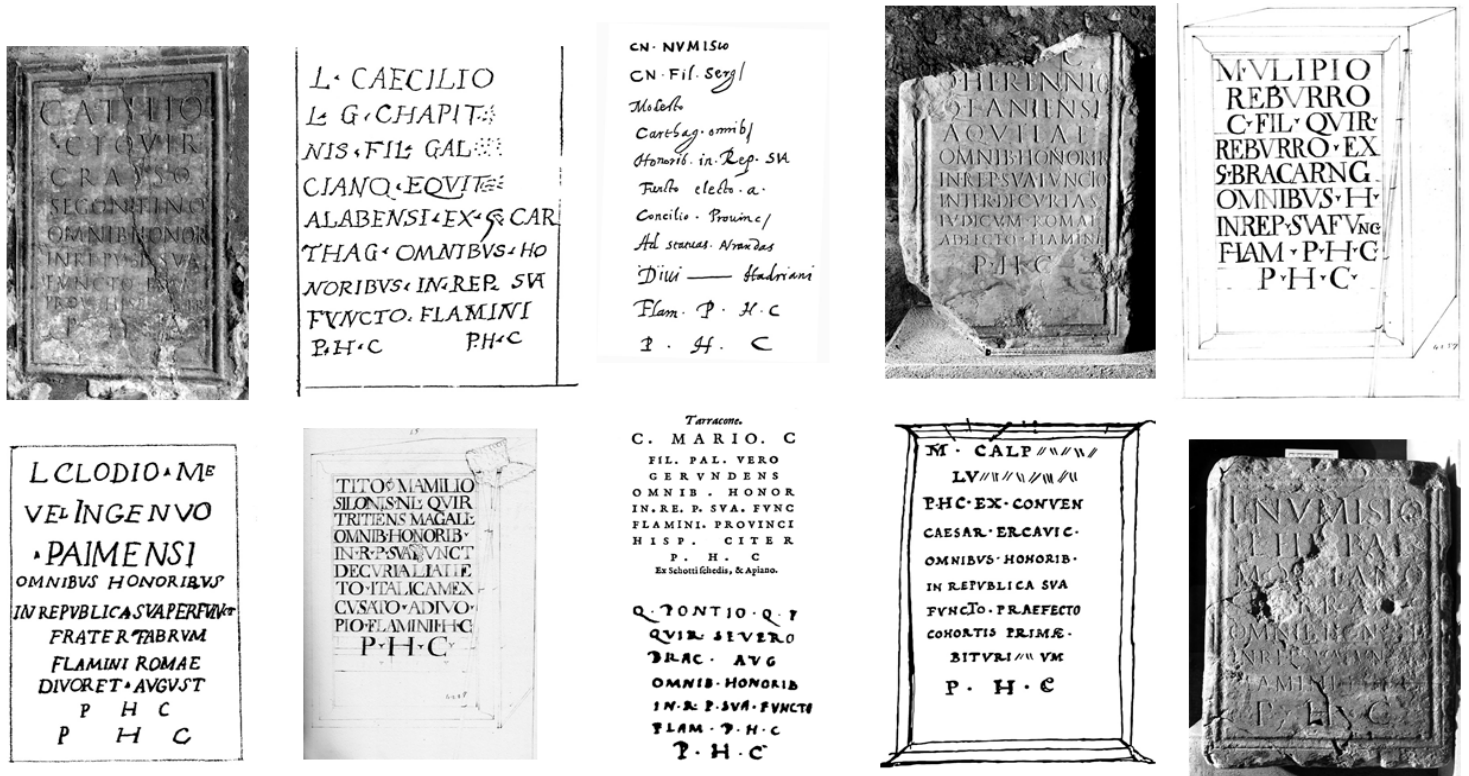 C · ATILIO
C · F · QVIR
CRASSO
SEGONTINO
OMNIB · HONOR
IN RE PVBL SVA
FVNCTO
L · CAECILIO
L · G · CHAPIT
NIS · FIL · GAL
CIANO · EQVIT
ALABENSI · EX · CAR
THAG · OMNIBVS · HO
NORIBVS · IN · REP. SVA
FVNCTO. FLAMINI
P. H · C P.H.C
CN · NVMISIO
CN · Fil. Serg/
Modesto
Carthag. omnib/
Honorib. in. Rep. SVA
Functo electo. a.
Concilio. Provinc/
Ad statuas. Avrandas
Diui — Hadriani
Flam. P. H. C
P. H. C
C
Q · HERENNIO
Q · F · ANIENSI
AQVILAE
OMNIB · HONORIB
IN REP · SVA FVNCTO
INTER · DECVRIAS
IVDICVM · ROMAE
ADLECTO · FLAMINI
P · H · C
M · VLIPIO
REBVRRO
C · FIL · QVIR
REBVRRO · EX
BRACARNG
OMNIBVS · H ·
INREP · SVAFVNG
FLAM · P · H · C
P · H · C ·
L CLODIO · ME
VEL INGENVO
· PAIMENSI
OMNIBVS HONORIBVS
IN REPVBLICA SVA PERFVNCT
FRATER FABRVM
FLAMINI ROMAE
DIVORET · AVGVST
P H C
P H C
TITO · MAMILIO
SILONIS · NL · QVIR
TRITIENS MAGALL
OMNIB · HONORIB ·
IN · R · P · SVA FVNCT
DECVRIALIALLE
TO · ITALICAMEX
CVSATO · ADIVO ·
PIO · FLAMINI H · G
P · H · C ·
Tarracone.
C. MARIO. C
FIL. PAL. VERO
GERVNDENS
OMNIB. HONOR
IN. RE. P. SVA. FVNC
FLAMINI. PROVINCI
HISP. CITER
P. H. C
Ex Schotti schedis, & Apiano.
Q. PONTIO. Q. F
QVIR SEVERO
BRAC. AVG
OMNIB · HONORIB
IN · R · P · SVA · FVNCTO
FLAM · P · H · C
P · H · C
M · CALP
LV
P · HC · EX · CONVEN
CAESAR · ERCAVIC ·
OMNIBVS · HONORIB ·
IN REPVBLICA SVA
FVNCTO · PRAEFECTO
COHORTIS PRIMÆ ·
BITVRI VM
P · H · C
L · NVMISIO
L · FIL · PAL
MONTANO
TARRAC
OMNIB · HONORIB
IN REP · SVA FVNC
FLAMINI
P · H · C